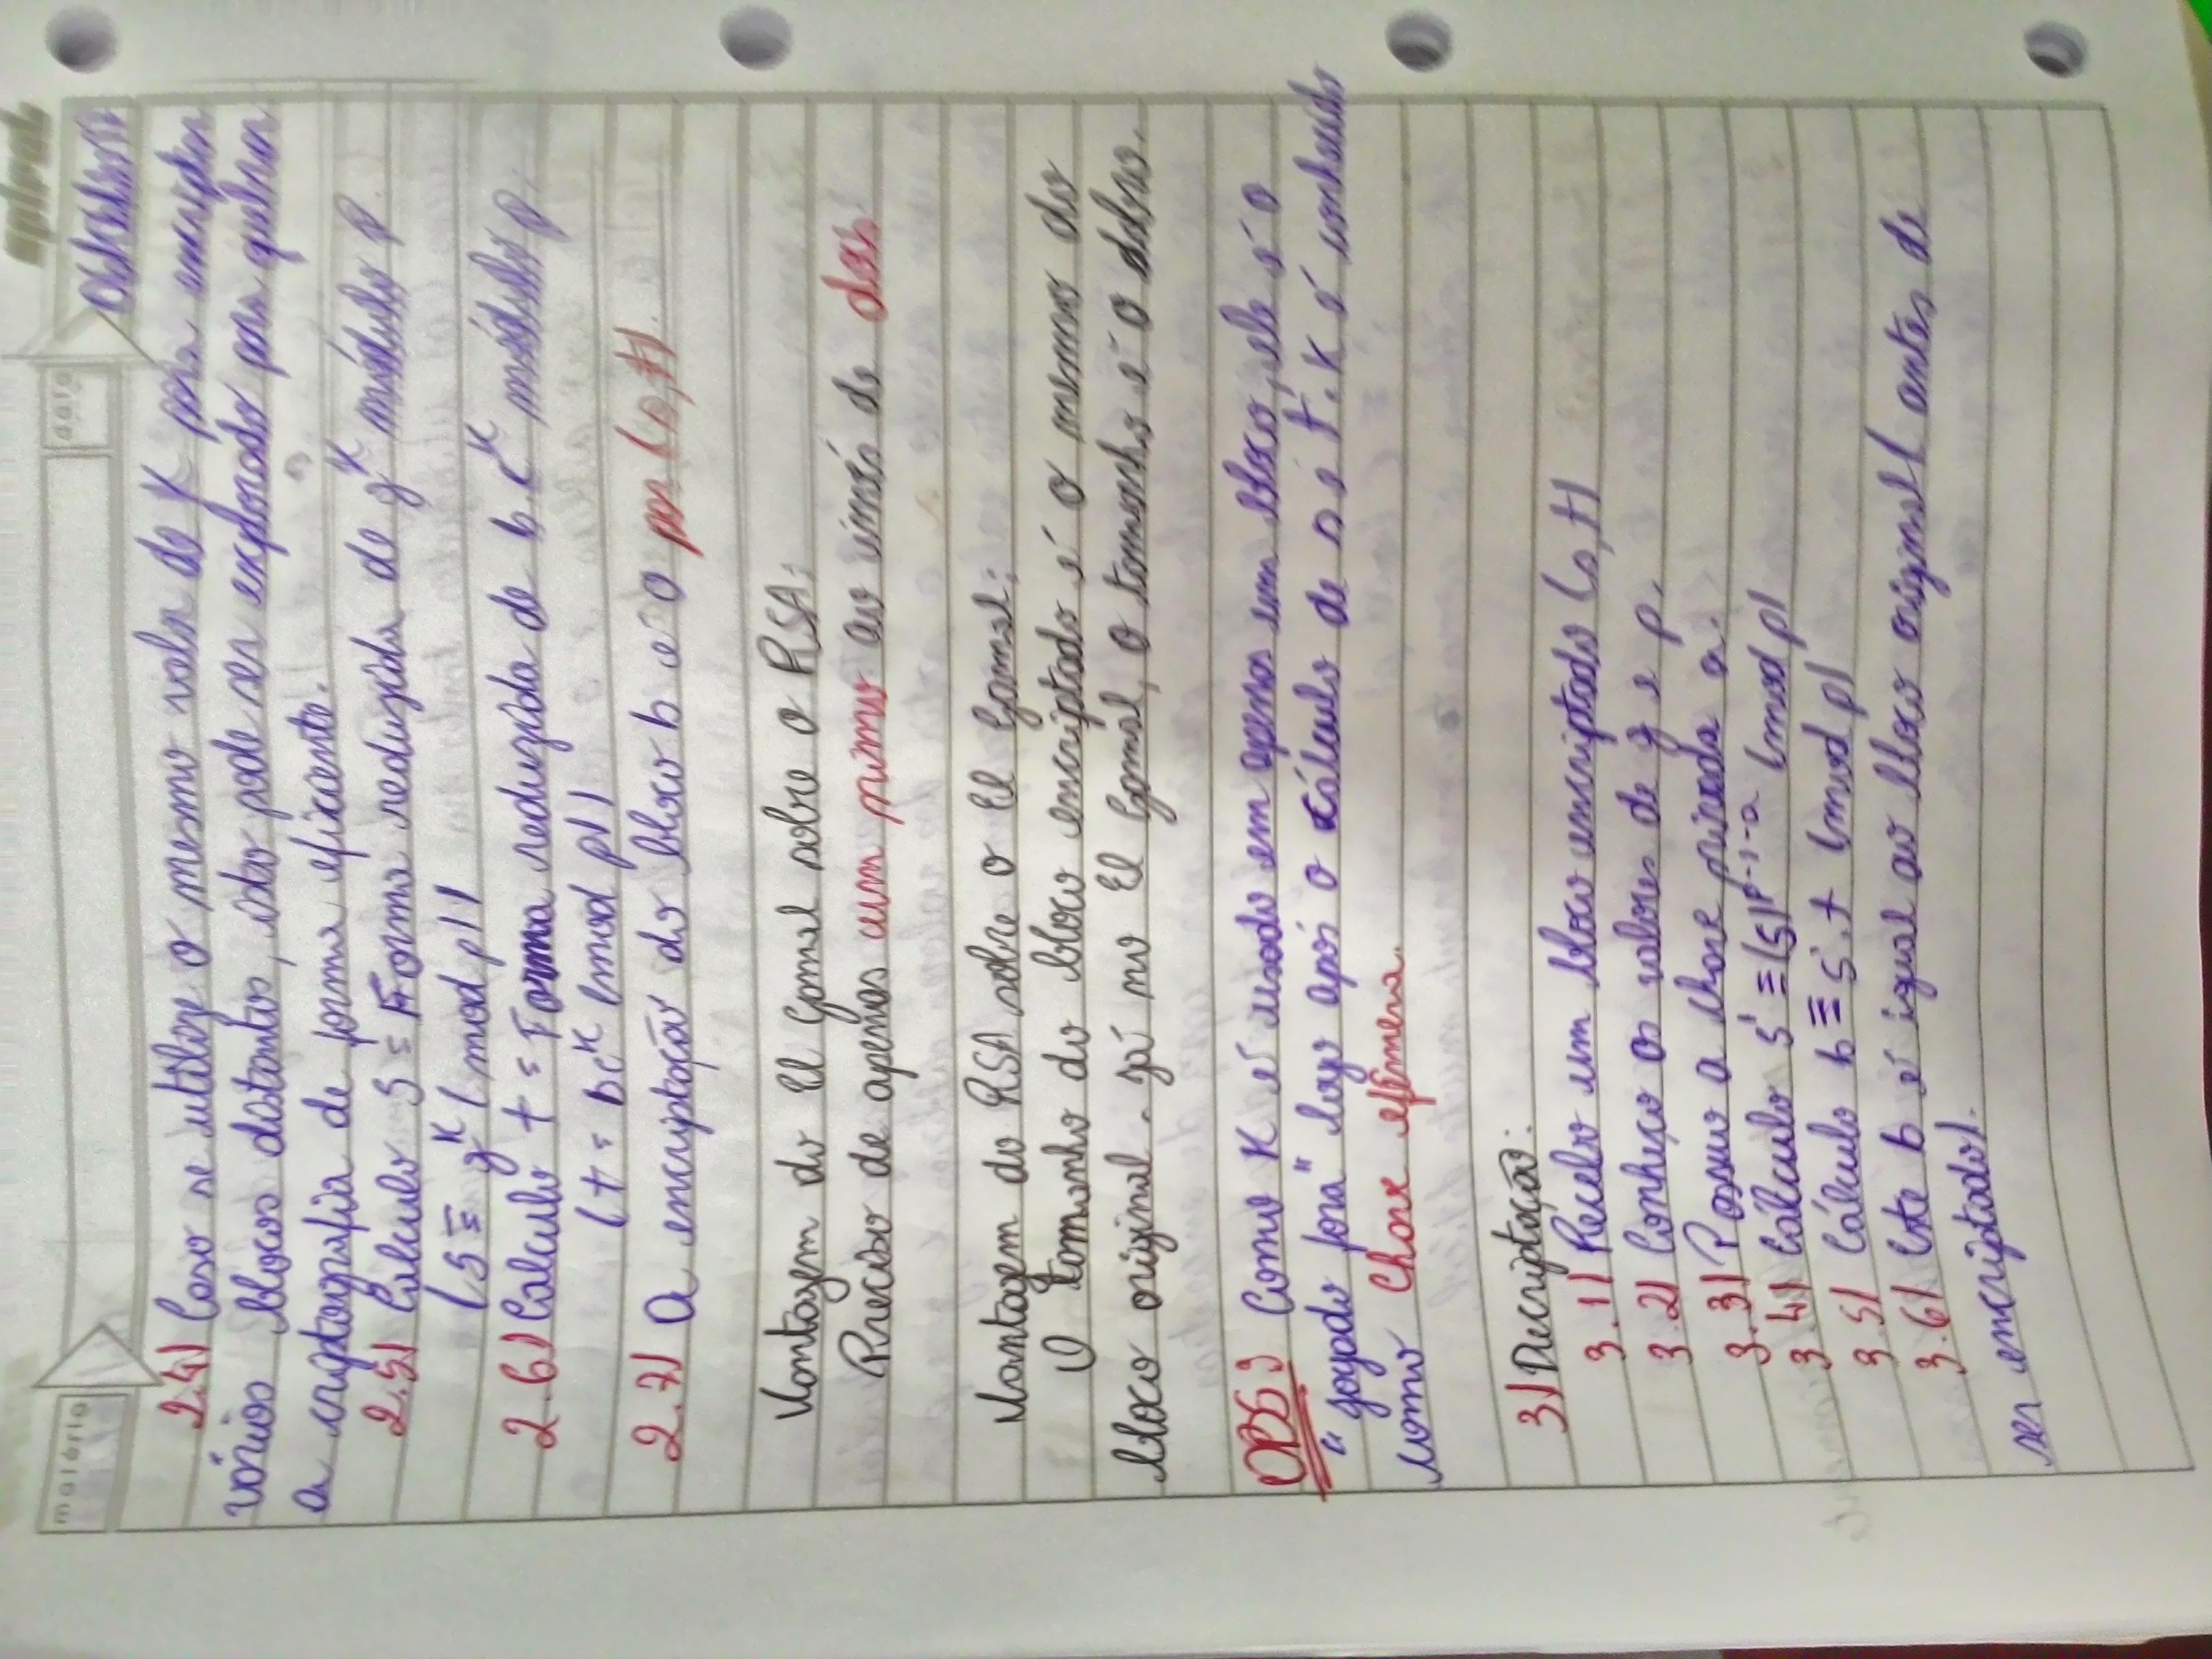 spiral
matéria
data
2.4) Caso se utilize o mesmo valor de K para encriptar
vários blocos distintos, isto pode ser explorado para quebrar
a criptografia de forma eficiente.
2.5) Calculo S = Forma reduzida de g^K módulo p.
(S ≡ g^K (mod p))
2.6) Calculo t = Forma reduzida de b.c^K módulo p.
(t = bc^K (mod p))
2.7) A encriptação do bloco b é o par (s,t).
Vantagem do El Gamal sobre o RSA:
Preciso de apenas um primo ao invés de dois.
Vantagem do RSA sobre o El Gamal:
O tamanho do bloco encriptado é o mesmo do
bloco original. Já no El Gamal, o tamanho é o dobro.
OBS: Como K é usado em apenas um bloco, ele é o
"jogado fora" logo após o cálculo de s e t. K é conhecido
como Chave efêmera.
3) Decriptação:
3.1) Recebo um bloco encriptado (s,t)
3.2) Conheço os valores de g e p.
3.3) Possuo a chave privada a.
3.4) Cálculo S' ≡ (S)^p-1-a (mod p)
3.5) Cálculo b ≡ S'.t (mod p)
3.6) Este b é igual ao bloco original (antes de
ser encriptado).